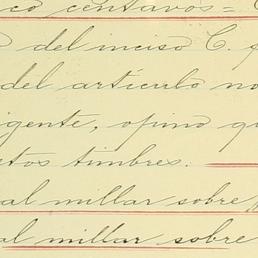 co centavos=
del inciso C.
del artículo no
igente, opino qu
etos timbres.
al millar sobre
al millar sobre